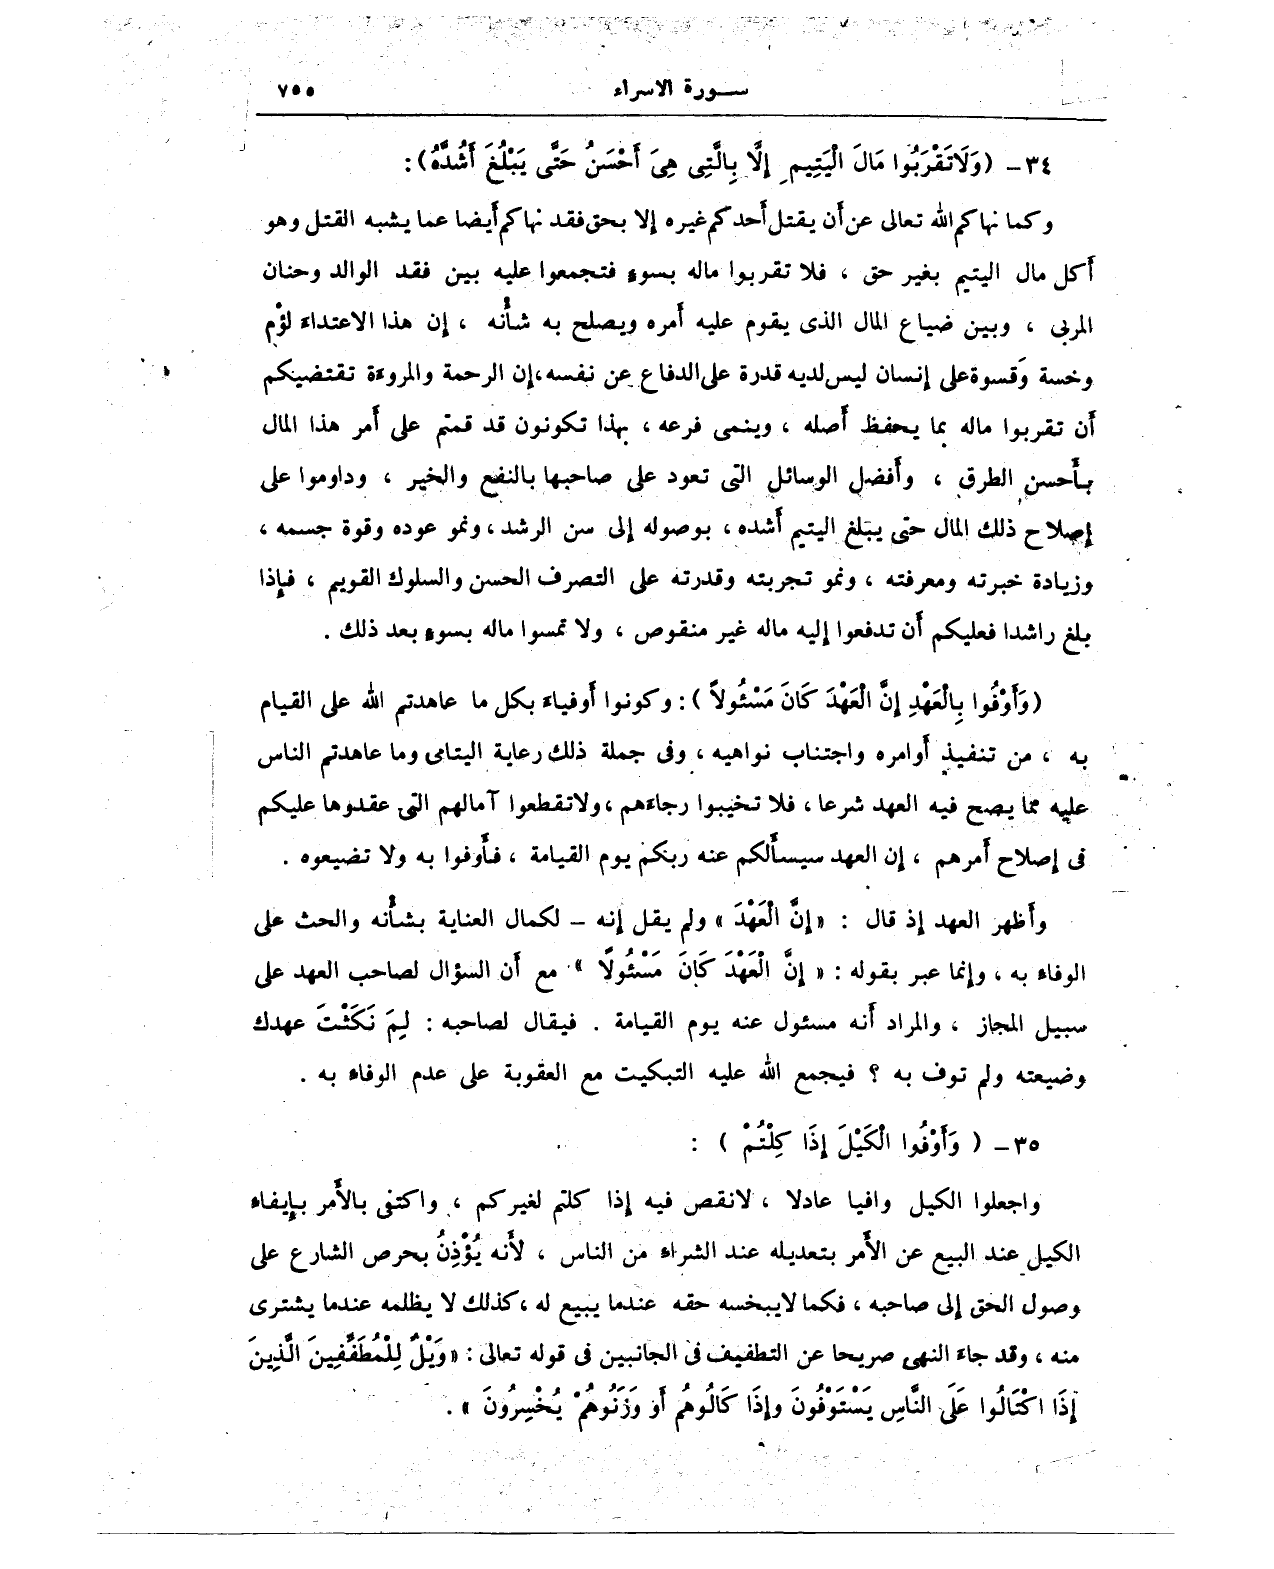 سورة الاسراء ٧٥٥
٣٤ – (وَلَا تَقْرَبُوا مَالَ الْيَتِيمِ إِلَّا بِالَّتِى هِىَ أَحْسَنُ حَتَّى يَبْلُغَ أَشُدَّهُ):
وكما نهاكم الله تعالى عن أن يقتل أحدكم غيره إلا بحق فقد نهاكم أيضا عما يشبه القتل وهو
أكل مال اليتيم بغير حق ، فلا تقربوا ماله بسوء فتجمعوا عليه بين فقد الوالد وحنان
المربى ، وبين ضياع المال الذى يقوم عليه أمره ويصلح به شأنه ، إن هذا الاعتداء لؤم
وخسة وقسوة على إنسان ليس لديه قدرة على الدفاع عن نفسه، إن الرحمة والمروءة تقتضيكم
أن تقربوا ماله بما يحفظ أصله ، وينمى فرعه ، بهذا تكونون قد قمتم على أمر هذا المال
بأحسن الطرق ، وأفضل الوسائل التى تعود على صاحبها بالنفع والخير ، وداوموا على
إصلاح ذلك المال حتى يبلغ اليتيم أشده ، بوصوله إلى سن الرشد ، ونمو عوده وقوة جسمه ،
وزيادة خبرته ومعرفته ، ونمو تجربته وقدرته على التصرف الحسن والسلوك القويم ، فإذا
بلغ راشدا فعليكم أن تدفعوا إليه ماله غير منقوص ، ولا تمسوا ماله بسوء بعد ذلك .
(وَأَوْفُوا بِالْعَهْدِ إِنَّ الْعَهْدَ كَانَ مَسْئُولاً ) : وكونوا أوفياء بكل ما عاهدتم الله على القيام
به ، من تنفيذ أوامره واجتناب نواهيه ، وفى جملة ذلك رعاية اليتامى وما عاهدتم الناس
عليه مما يصح فيه العهد شرعا ، فلا تخيبوا رجاءهم ، ولا تقطعوا آمالهم التى عقدوها عليكم
فى إصلاح أمرهم ، إن العهد سيسألكم عنه ربكم يوم القيامة ، فأوفوا به ولا تضيعوه .
وأظهر العهد إذ قال : « إِنَّ الْعَهْدَ » ولم يقل إنه – لكمال العناية بشأنه والحث على
الوفاء به ، وإنما عبر بقوله : « إِنَّ الْعَهْدَ كَانَ مَسْئُولًا » مع أن السؤال لصاحب العهد على
سبيل المجاز ، والمراد أنه مسئول عنه يوم القيامة . فيقال لصاحبه : لِمَ نَكَثْتَ عهدك
وضيعته ولم توف به ؟ فيجمع الله عليه التبكيت مع العقوبة على عدم الوفاء به .
٣٥ – ( وَأَوْفُوا الْكَيْلَ إِذَا كِلْتُمْ ) :
واجعلوا الكيل وافيا عادلا ، لانقص فيه إذا كلتم لغيركم ، واكتفى بالأمر بإيفاء
الكيل عند البيع عن الأمر بتعديله عند الشراء من الناس ، لأنه يُؤْذِنُ بحرص الشارع على
وصول الحق إلى صاحبه ، فكما لايبخسه حقه عندما يبيع له ، كذلك لا يظلمه عندما يشترى
منه ، وقد جاء النهى صريحا عن التطفيف فى الجانبين فى قوله تعالى : « وَيْلٌ لِلْمُطَفِّفِينَ الَّذِينَ
إِذَا اكْتَالُوا عَلَى النَّاسِ يَسْتَوْفُونَ وإِذَا كَالُوهُمْ أَو وَزَنُوهُمْ يُخْسِرُونَ » .